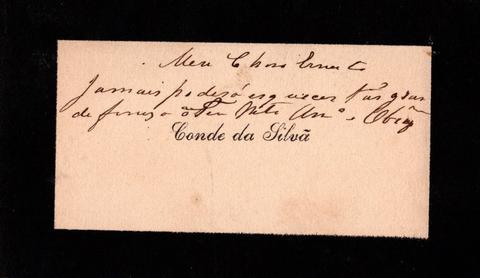 Meu Charo Ernesto
Jamais poderá esquecer tão gran
de fineza o Teu Mto Amº e Obrgº
Conde da Silvã